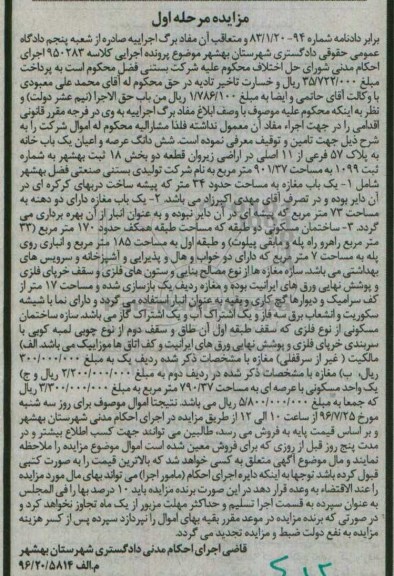 مزایده مرحله اول
برابر دادنامه شماره ۹۴-۸۳/۱/۲۰ و متعاقب آن مفاد برگ اجراییه صادره از شعبه پنجم دادگاه
عمومی حقوقی دادگستری شهرستان بهشهر موضوع پرونده اجرایی کلاسه ۹۵۰۲۸۳ اجرای
احکام مدنی شورای حل اختلاف محکوم علیه شرکت بستنی فضل محکوم است به پرداخت
مبلغ ۳۵/۷۲۲/۰۰۰ ریال و خسارت تاخیر تادیه در حق محکوم له آقای محمد علی معبودی
با وکالت آقای حاتمی و ایضا به مبلغ ۱/۷۸۶/۱۰۰ ریال من باب حق الاجرا (نیم عشر دولت) و
نظر به اینکه محکوم علیه موصوف با وصف ابلاغ مفاد برگ اجراییه به وی در فرجه مقرر قانونی
اقدامی را در جهت اجراء مفاد آن معمول نداشته فلذا مشارالیه محکوم له اموال شرکت را به
شرح ذیل جهت تامین و توقیف معرفی نموده است. شش دانگ عرصه و اعیان یک باب خانه
به پلاک ۵۷ فرعی از ۱۱ اصلی در اراضی زیروان قطعه دو بخش ۱۸ ثبت بهشهر به شماره
ثبت ۱۰۹۹ به مساحت ۹۰۱/۳۷ متر مربع به نام شرکت تولیدی بستنی صنعتی فضل بهشهر
شامل ۱- یک باب مغازه به مساحت حدود ۳۴ متر که پیشه ساخت دربهای کرکره ای در
آن دایر بوده و در تصرف آقای مهدی اکبرزاد می باشد. ۲- یک باب مغازه دارای دو دهنه به
مساحت ۷۳ متر مربع که پیشه ای در آن دایر نبوده و به عنوان انبار از آن بهره برداری می
گردد. ۳- ساختمان مسکونی دو طبقه که مساحت طبقه همکف حدود ۱۷۰ متر مربع (۳۳
متر مربع راهرو راه پله و مابقی پیلوت) و طبقه اول به مساحت ۱۸۵ متر مربع و انباری روی
پله به مساحت ۷ متر مربع که دارای دو خواب و هال و پذیرایی و آشپزخانه و سرویس های
بهداشتی می باشد. سازه مغازه ها از نوع مصالح بنایی و ستون های فلزی و سقف خرپای فلزی
و پوشش نهایی ورق های ایرانیت بوده و مغازه ردیف یک بازسازی شده و مساحت ۱۷ متر از
کف سرامیک و دیوارها گچ کاری و بقیه به عنوان انبار استفاده می گردد و دارای نما با شیشه
سکوریت و انشعاب برق سه فاز و یک اشتراک آب و یک اشتراک گاز می باشد. سازه ساختمان
مسکونی از نوع فلزی که سقف طبقه اول آن طاق و سقف دوم از نوع چوبی لمبه کوبی با
سربندی خرپای فلزی و پوشش نهایی ورق های ایرانیت و کف اتاق ها موزاییک می باشد. الف)
مالکیت (غیر از سرقفلی) مغازه با مشخصات ذکر شده ردیف یک به مبلغ ۳۰۰/۰۰۰/۰۰۰
ریال، ب) مغازه با مشخصات ذکر شده در ردیف دوم به مبلغ ۲/۲۰۰/۰۰۰/۰۰۰ ریال و ج)
یک واحد مسکونی با عرصه ای به مساحت ۷۹۰/۳۷ متر مربع به مبلغ ۳/۳۰۰/۰۰۰/۰۰۰ ریال
که جمعا به مبلغ ۵/۸۰۰/۰۰۰/۰۰۰ ریال می باشد. نتیجتا اموال موصوف برای روز سه شنبه
مورخ ۹۶/۷/۲۵ از ساعت ۱۰ الی ۱۲ از طریق مزایده در اجرای احکام مدنی شهرستان بهشهر
و بر اساس قیمت پایه به فروش می رسد، طالبین می توانند جهت کسب اطلاع بیشتر و در
مدت پنج روز قبل از روزی که برای فروش معین شده است اموال موضوع مزایده را ملاحظه
نمایند و مال موضوع آگهی متعلق به کسی خواهد شد که بالاترین قیمت را به صورت کتبی
قبول کرده باشد توجها به اینکه دایره اجرای احکام (مامور اجرا) می تواند بهای مال مورد مزایده
را عند الاقتضاء به وعده قرار دهد در این صورت برنده مزایده باید ۱۰ درصد بها را فی المجلس
به عنوان سپرده به قسمت اجرا تسلیم و حداکثر مهلت مزبور از یک ماه تجاوز نخواهد کرد و
در صورتی که برنده مزایده در موعد مقرر بقیه بهای اموال را نپردازد سپرده پس از کسر هزینه
مزایده به نفع دولت ضبط و مزایده تجدید می گردد.
قاضی اجرای احکام مدنی دادگستری شهرستان بهشهر
م.الف ۹۶/۲۰/۵۸۱۴